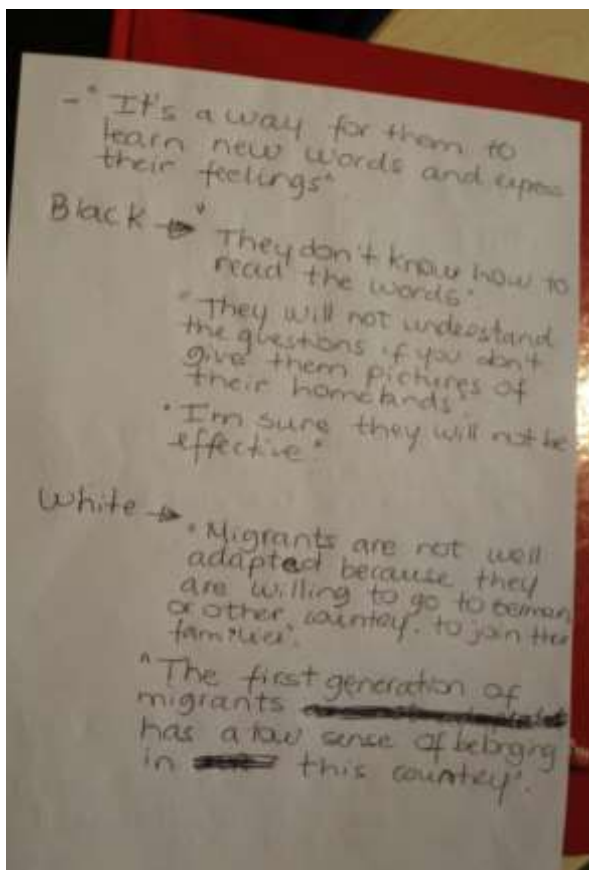 - "It's a way for them to
learn new words and express
their feelings"
Black → "They don't know how to
read the words"
"They will not understand
the questions if you don't
give them pictures of
their homelands"
"I'm sure they will not be
effective"
White → "Migrants are not well
adapted because they
are willing to go to German
or other country. to join their
families".
"The first generation of
migrants
has a low sense of belonging
in this country".